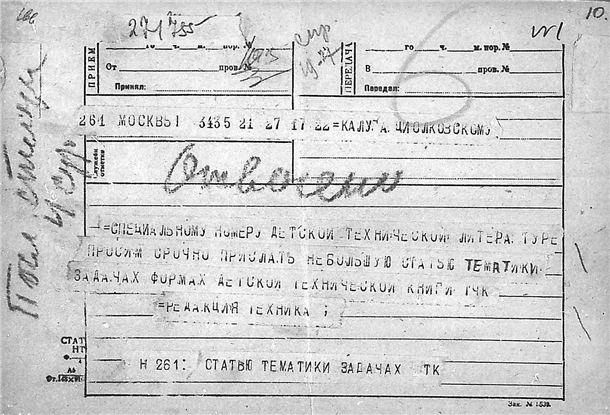 271755
10.
ПРИЕМ
го ч. м. пор. №
От пров. №
Принял:
ПЕРЕДАЧА
го ч. м. пор. №
В пров. №
Передал:
6
261 МОСКВЫ 3435 21 27 17 22 =КАЛУГА ЦИОЛКОВСКОМУ
Служебн. отметки
Отвечено
=СПЕЦИАЛЬНОМУ НОМЕРУ ДЕТСКОЙ ТЕХНИЧЕСКОЙ ЛИТЕРАТУРЕ
ПРОСИМ СРОЧНО ПРИСЛАТЬ НЕБОЛЬШУЮ СТАТЬЮ ТЕМАТИКИ
ЗАДАЧАХ ФОРМАХ ДЕТСКОЙ ТЕХНИЧЕСКОЙ КНИГИ ТЧК
=РЕДАКЦИЯ ТЕХНИКА ;
Н 261: СТАТЬЮ ТЕМАТИКИ ЗАДАЧАХ ТК